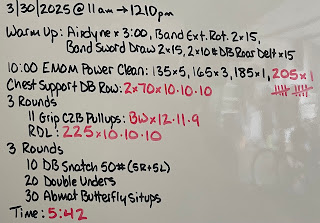 3/30/2025 @ 11am → 1210pm
Warm Up: Airdyne x 3:00, Band Ext. Rot. 2x15,
Band Sword Draw 2x15, 2x10# DB Roar Delt x15
10:00 EMOM Power Clean: 135x5, 165x3, 185x1, 205x1
Chest Support DB Row: 2x70x10.10.10
3 Rounds
11 Grip C2B Pullups: BWx12.11.9
RDL: 225x10.10.10
3 Rounds
10 DB Snatch 50# (5R+5L)
20 Double Unders
30 Abmat Butterfly Situps
Time: 5:42